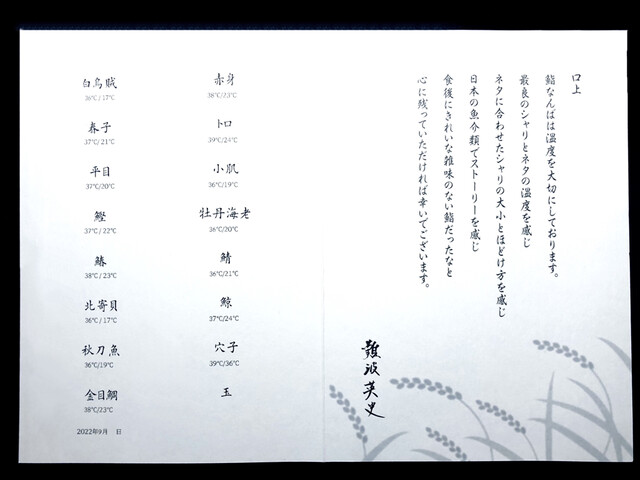 口上
鮨なんばは温度を大切にしております。
最良のシャリとネタの温度を感じ
ネタに合わせたシャリの大小とほどけ方を感じ
日本の魚介類でストーリーを感じ
食後にきれいな雑味のない鮨だったなと
心に残っていただければ幸いでございます。
難波英史
白烏賊
36℃/17℃
春子
37℃/21℃
平目
37℃/20℃
鰹
37℃/22℃
鰆
38℃/23℃
北寄貝
36℃/17℃
秋刀魚
36℃/19℃
金目鯛
38℃/23℃
赤身
38℃/23℃
トロ
39℃/24℃
小肌
36℃/19℃
牡丹海老
36℃/20℃
鯖
36℃/21℃
鯨
37℃/24℃
穴子
39℃/36℃
玉
2022年9月 日